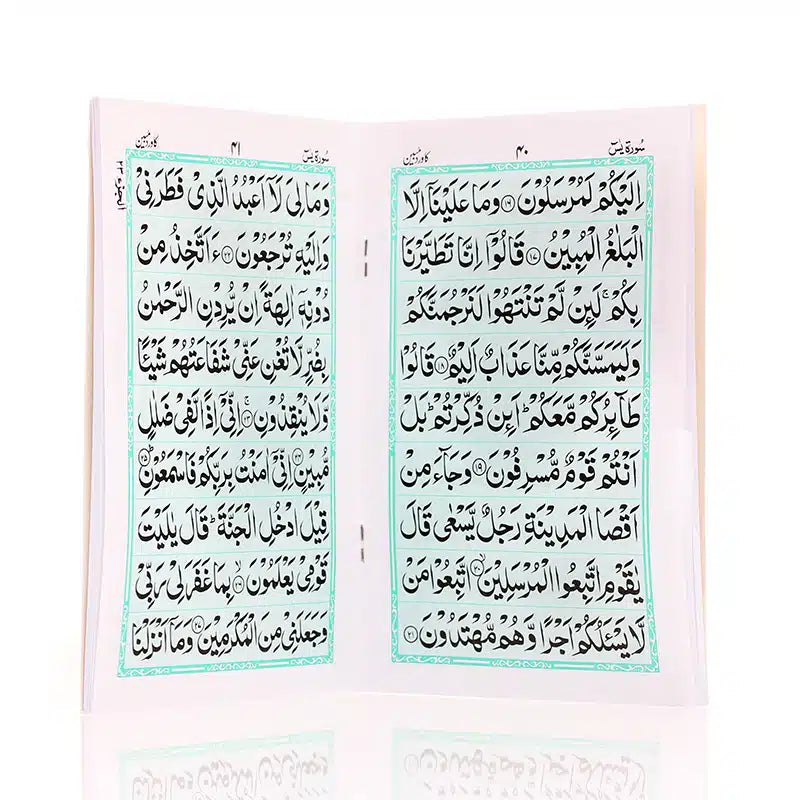 سُورَة يٰسٓ ۴۰ کاورد مبین
اِلَيْكُمْ لَمُرْسَلُوْنَ ﴿۱۶﴾ وَمَا عَلَيْنَاۤ اِلَّا
الْبَلٰغُ الْمُبِيْنُ ﴿۱۷﴾ قَالُوْۤا اِنَّا تَطَيَّرْنَا
بِكُمْ ۚ لَئِنْ لَّمْ تَنْتَهُوْا لَنَرْجُمَنَّكُمْ
وَلَيَمَسَّنَّكُمْ مِّنَّا عَذَابٌ اَلِيْمٌ ﴿۱۸﴾ قَالُوْا
طَآئِرُكُمْ مَّعَكُمْ ؕ اَئِنْ ذُكِّرْتُمْ ؕ بَلْ
اَنْتُمْ قَوْمٌ مُّسْرِفُوْنَ ﴿۱۹﴾ وَجَآءَ مِنْ
اَقْصَا الْمَدِيْنَةِ رَجُلٌ يَّسْعٰى قَالَ
يٰقَوْمِ اتَّبِعُوا الْمُرْسَلِيْنَ ﴿۲۰﴾ۙ اتَّبِعُوْا مَنْ
لَّا يَسْئَلُكُمْ اَجْرًا وَّهُمْ مُّهْتَدُوْنَ ﴿۲۱﴾
سُورَة يٰسٓ ۴۱ کاورد مبین
الجزء ۲۳
وَمَا لِىَ لَاۤ اَعْبُدُ الَّذِىْ فَطَرَنِىْ
وَاِلَيْهِ تُرْجَعُوْنَ ﴿۲۲﴾ ءَاَتَّخِذُ مِنْ
دُوْنِهٖۤ اٰلِهَةً اِنْ يُّرِدْنِ الرَّحْمٰنُ
بِضُرٍّ لَّا تُغْنِ عَنِّىْ شَفَاعَتُهُمْ شَيْئًا
وَّلَا يُنْقِذُوْنِ ﴿۲۳﴾ۚ اِنِّىْۤ اِذًا لَّفِىْ ضَلٰلٍ
مُّبِيْنٍ ﴿۲۴﴾ اِنِّىْۤ اٰمَنْتُ بِرَبِّكُمْ فَاسْمَعُوْنِ ﴿۲۵﴾ؕ
قِيْلَ ادْخُلِ الْجَنَّةَ ؕ قَالَ يٰلَيْتَ
قَوْمِىْ يَعْلَمُوْنَ ﴿۲۶﴾ۙ بِمَا غَفَرَلِىْ رَبِّىْ
وَجَعَلَنِىْ مِنَ الْمُكْرَمِيْنَ ﴿۲۷﴾ وَمَاۤ اَنْزَلْنَا